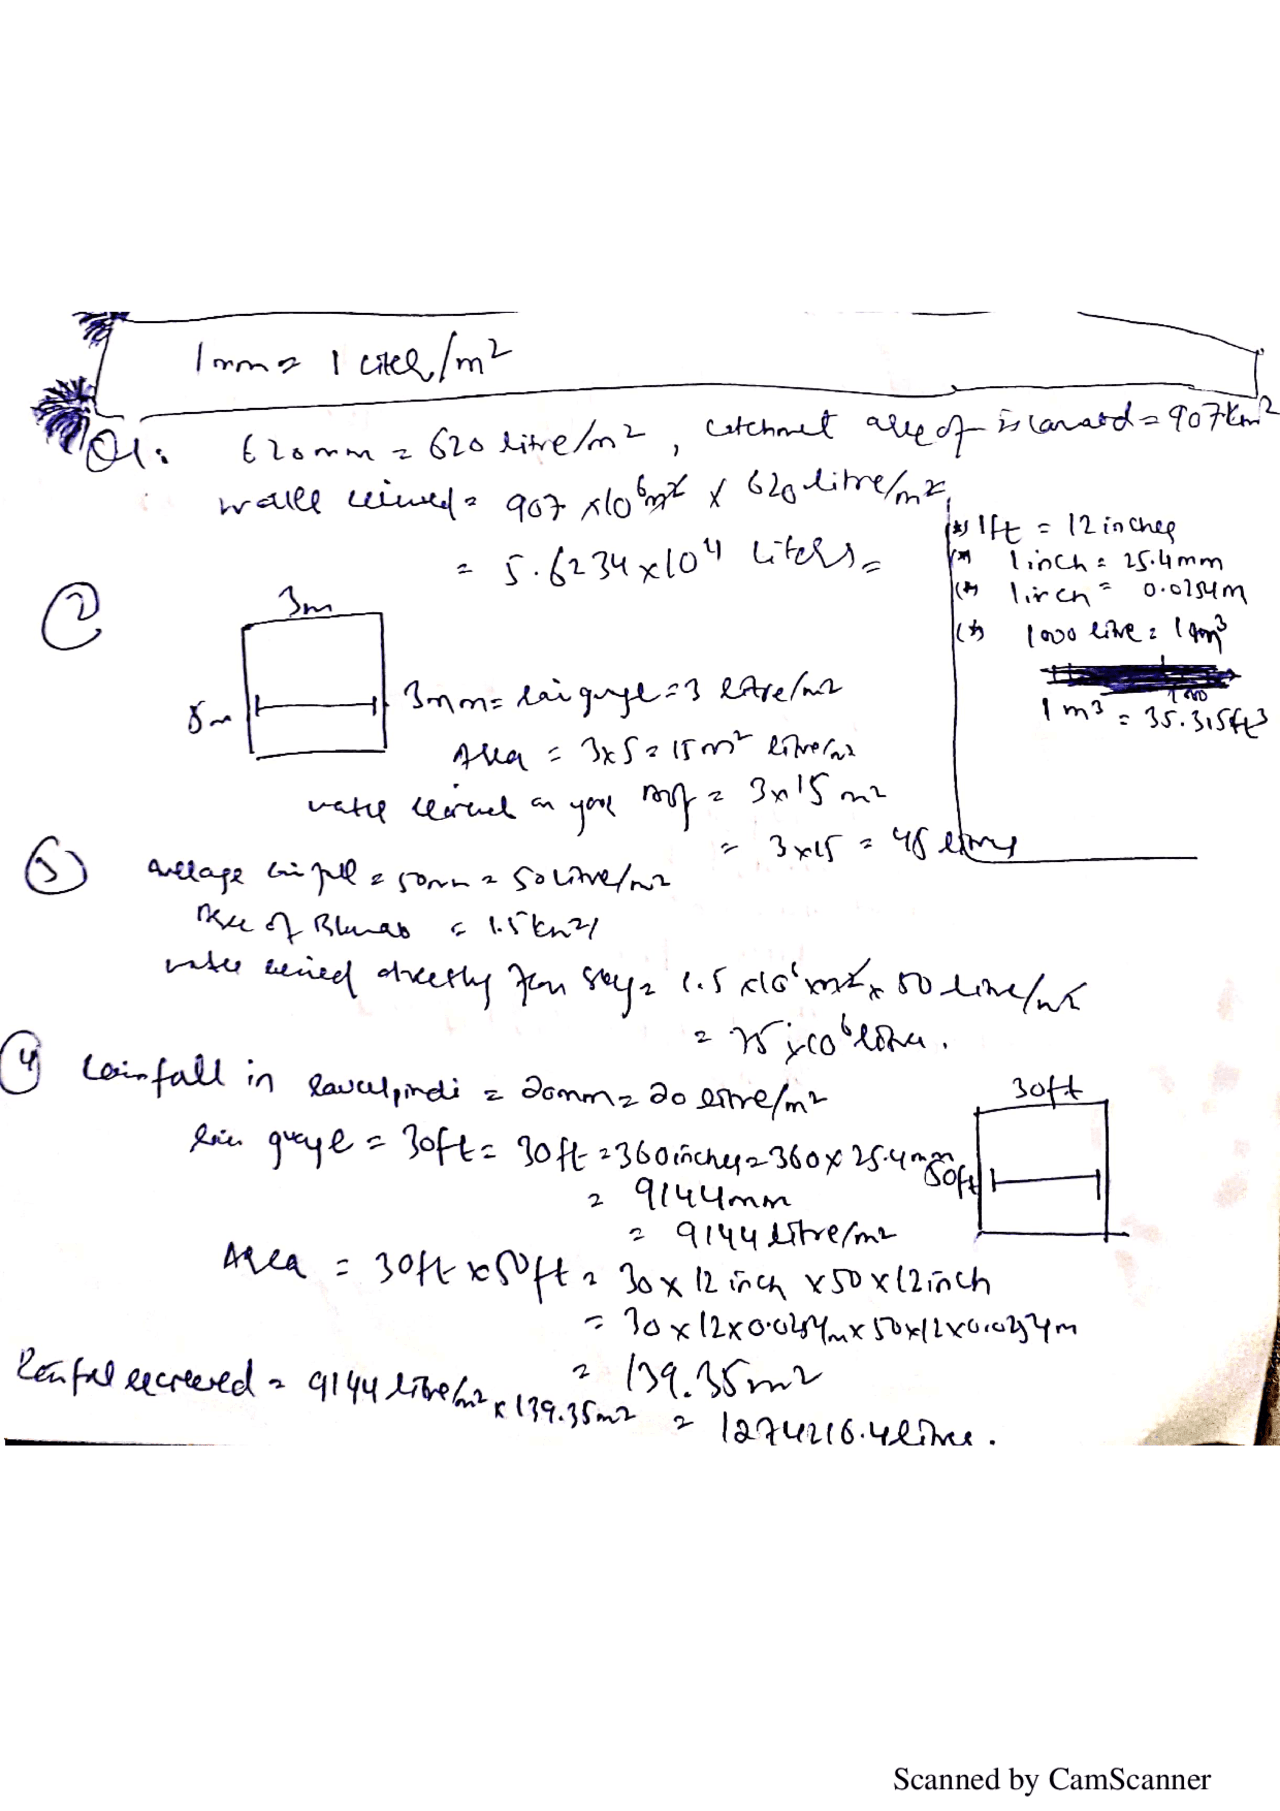 1mm = 1 liter/m²
Q1: 620mm = 620 litre/m², catchmet area of islamabd = 907km²
water reeived = 907 x10⁶m² x 620 litre/m²
= 5.6234x10¹¹ liters =
(*) 1ft = 12 inches
(*) 1 inch = 25.4mm
(*) 1 inch = 0.0254m
(*) 1000 litre = 1m³
1m³ = 35.315ft³
2
3m
5m
3mm = rain guage = 3 litre/m²
Area = 3x5 = 15m² litre/m²
water received on your roof = 3x15 m²
= 3x15 = 45 litres
3 average rainfall = 50mm = 50 litre/m²
Area of = 1.5km²
water received directly from sky = 1.5 x10⁶m² x 50 litre/m²
= 75 x10⁶ litre.
4 Rainfall in Rawalpindi = 20mm = 20 litre/m²
30ft
50ft
Rain guage = 30ft = 30ft = 360inches = 360 x 25.4mm
= 9144mm
= 9144 litre/m²
Area = 30ft x 50ft = 30x12 inch x 50x12inch
= 30x12x0.0254m x 50x12x0.0254m
= 139.35m²
Rainfal received = 9144 litre/m² x 139.35m² = 1274216.4litre.
Scanned by CamScanner